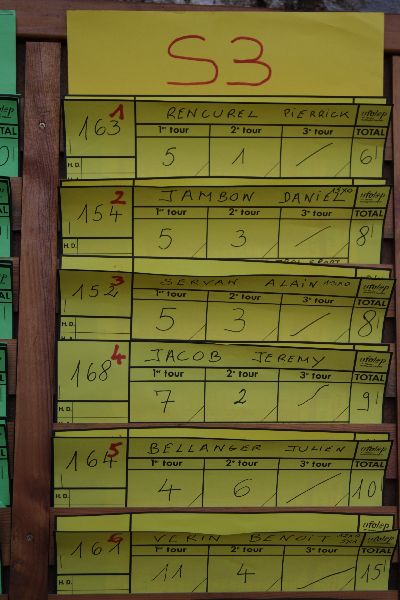 S3
1
163 RENCUREL PIERRICK ufolep
1er tour 2e tour 3e tour TOTAL
5 1 / 6
H.D.
2
154 JAMBON DANIEL 13x0 ufolep
1er tour 2e tour 3e tour TOTAL
5 3 / 8
H.D.
3
152 SERVAN ALAIN 13x0 ufolep
1er tour 2e tour 3e tour TOTAL
5 3 / 8
H.D.
4
168 JACOB JEREMY ufolep
1er tour 2e tour 3e tour TOTAL
7 2 / 9
H.D.
5
164 BELLANGER JULIEN ufolep
1er tour 2e tour 3e tour TOTAL
4 6 / 10
H.D.
ufolep
6
161 VERIN BENOIT ufolep
1er tour 2e tour 3e tour TOTAL
11 4 / 15
H.D.